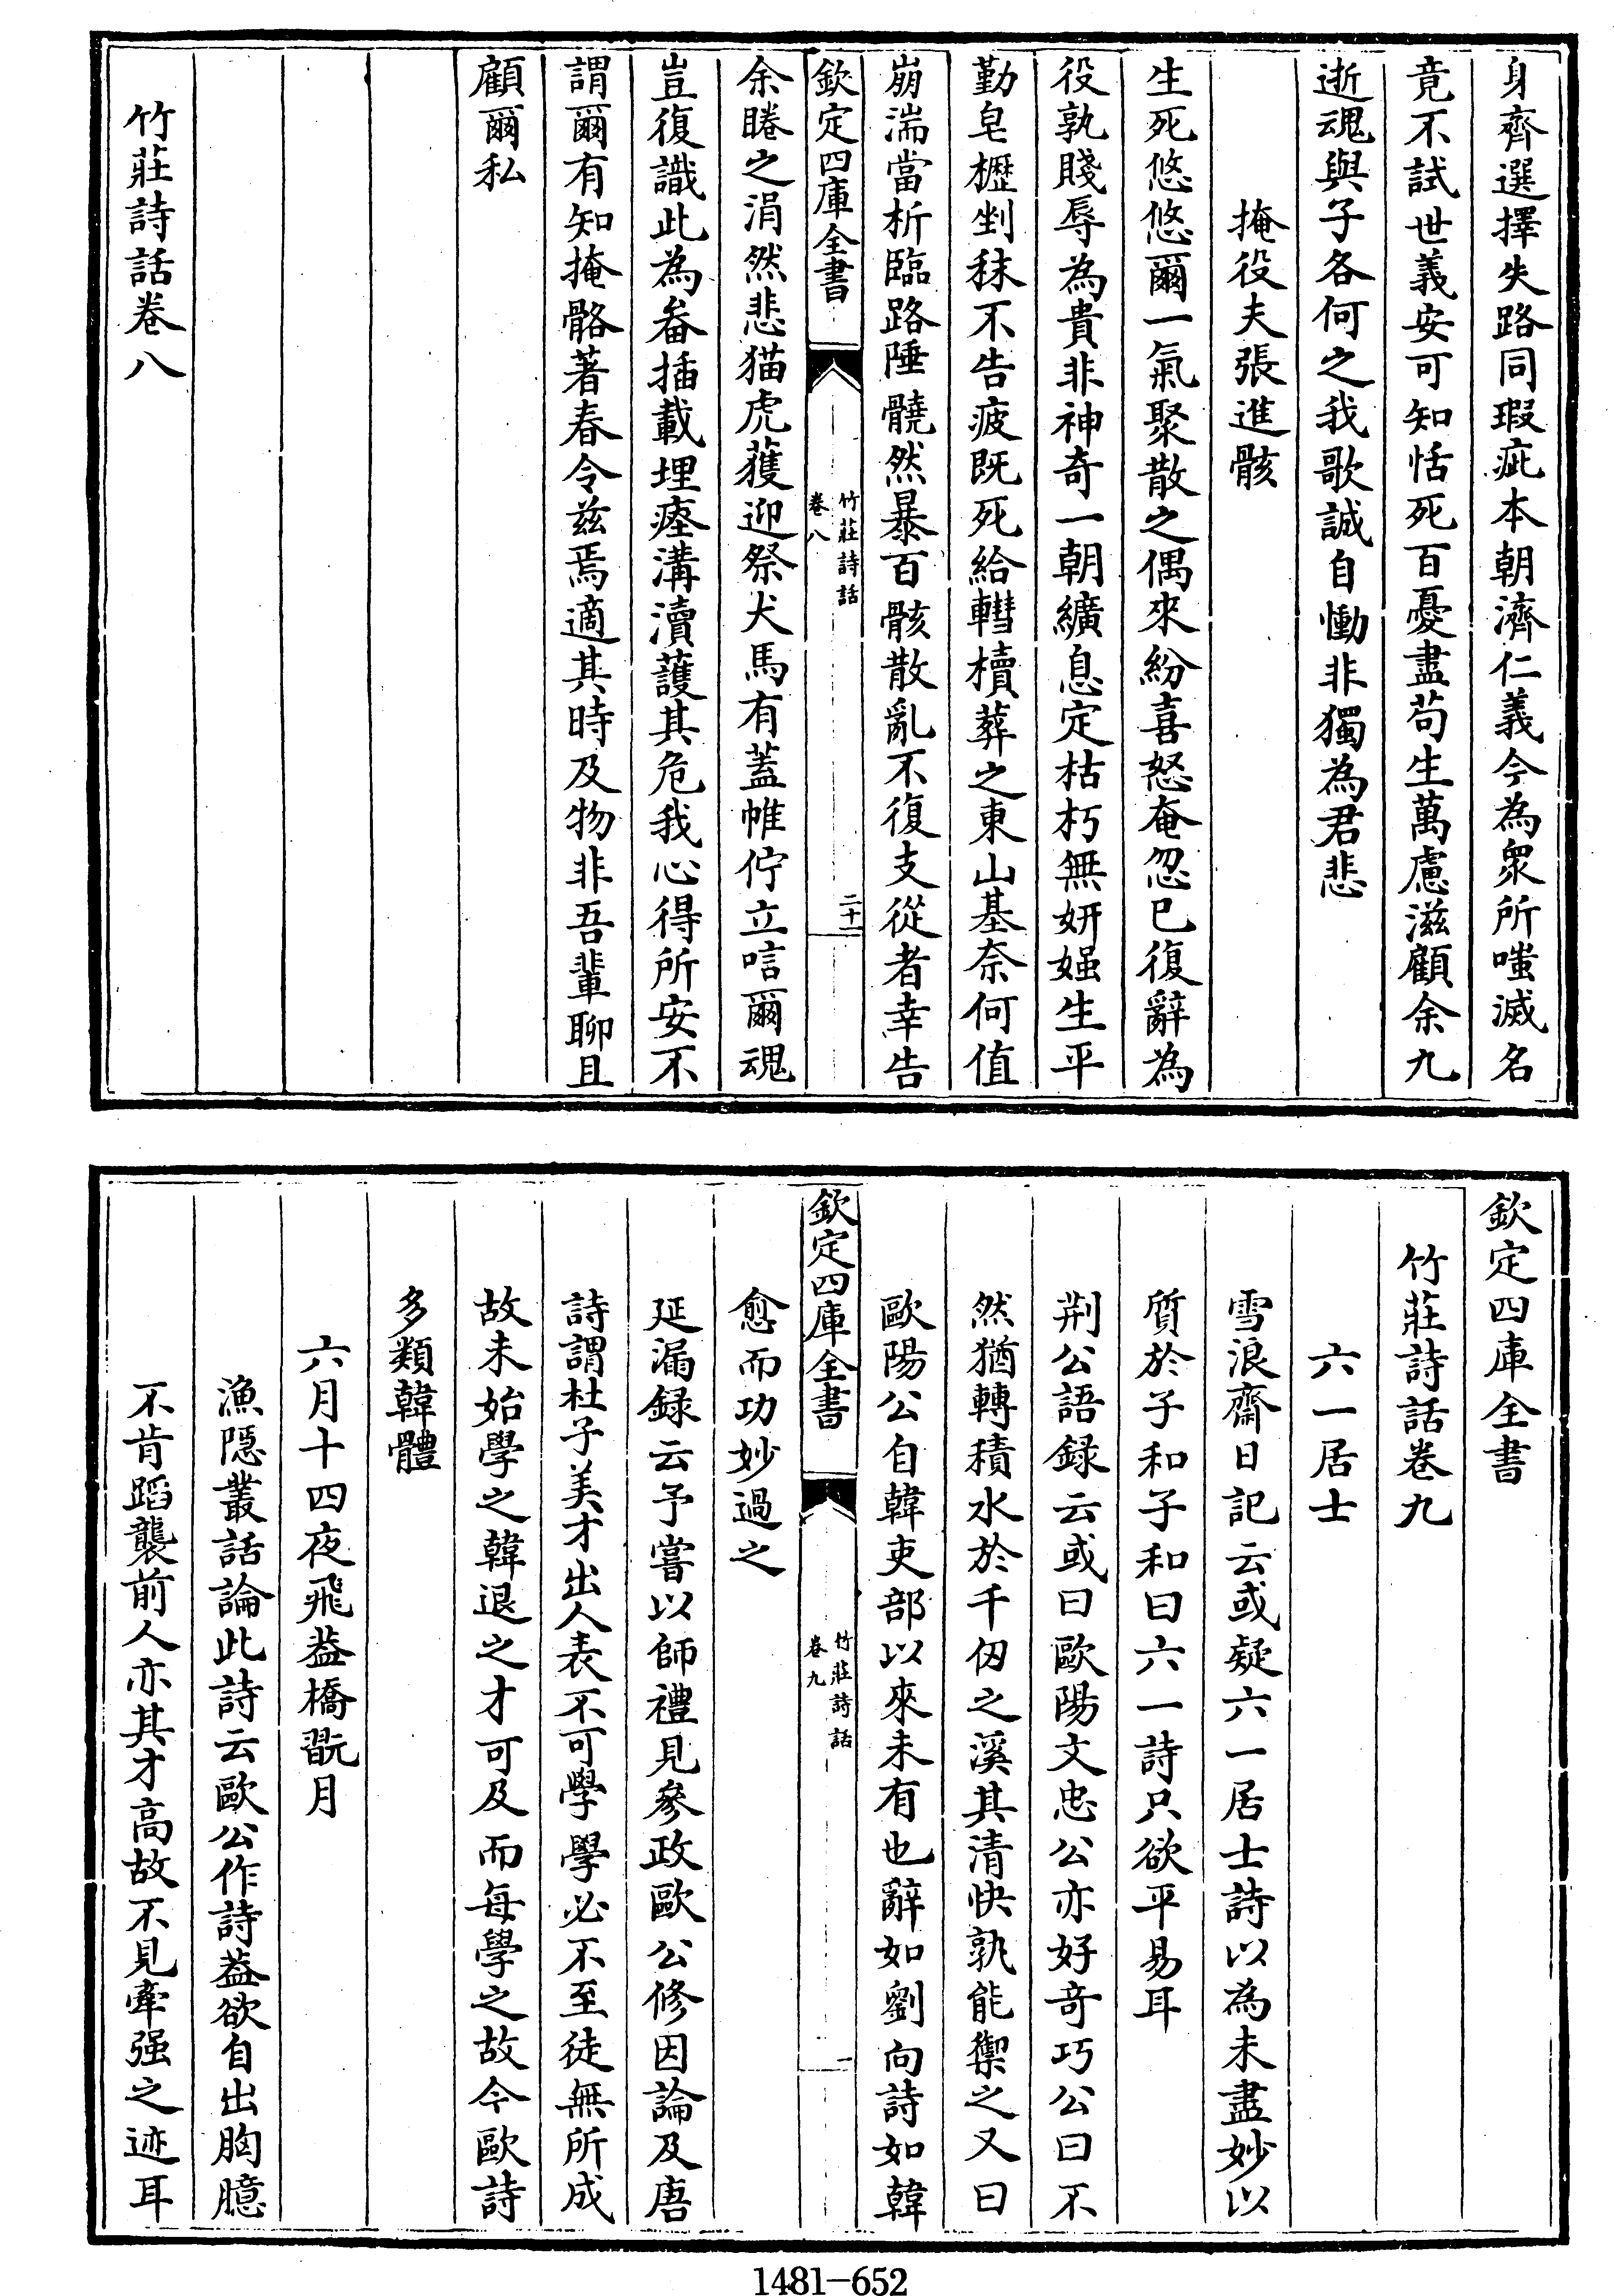 身齊選擇失路同瑕疵本朝濟仁義今為衆所嗤滅名
竟不試世義安可知恬死百憂盡苟生萬慮滋顧余九
逝魂與子各何之我歌誠自慟非獨為君悲
掩役夫張進骸
生死悠悠爾一氣聚散之偶來紛喜怒奄忽已復辭為
役孰賤辱為貴非神奇一朝纊息定枯朽無妍媸生平
勤皂櫪剉秣不告疲既死給轊櫝葬之東山基奈何值
崩湍當析臨路陲髐然暴百骸散亂不復支從者幸告
欽定四庫全書
竹莊詩話
卷八
二十一
余睠之涓然悲猫虎獲迎祭犬馬有蓋帷佇立唁爾魂
豈復識此為畚插載埋瘞溝瀆護其危我心得所安不
謂爾有知掩骼著春令兹焉適其時及物非吾輩聊且
顧爾私
竹莊詩話卷八
欽定四庫全書
竹莊詩話卷九
六一居士
雪浪齋日記云或疑六一居士詩以為未盡妙以
質於子和子和曰六一詩只欲平易耳
荆公語録云或曰歐陽文忠公亦好竒巧公曰不
然猶轉積水於千仭之溪其清快孰能禦之又曰
歐陽公自韓吏部以來未有也辭如劉向詩如韓
欽定四庫全書
竹莊詩話
卷九
一
愈而功妙過之
延漏録云予嘗以師禮見參政歐公修因論及唐
詩謂杜子美才出人表不可學學必不至徒無所成
故未始學之韓退之才可及而每學之故今歐詩
多類韓體
六月十四夜飛葢橋翫月
漁隠叢話論此詩云歐公作詩葢欲自出胸臆
不肯蹈襲前人亦其才高故不見牽强之迹耳
1481-652